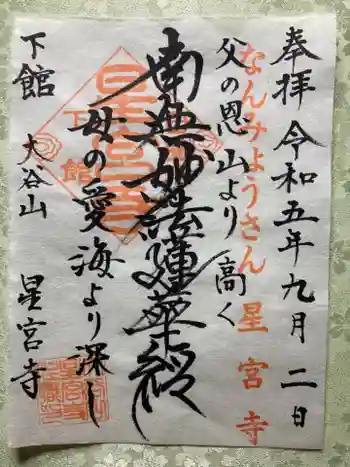 奉拝 令和五年九月二日
なんみょうさん 星宮寺
父の恩山より高く
南無妙法蓮華経
母の愛海より深し
下館 大谷山 星宮寺
下館